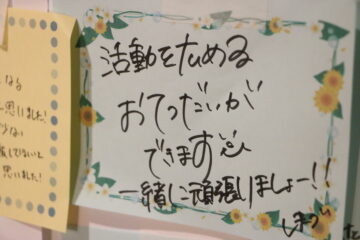 なる
思いました!
少ない
思いました!
活動を広める
おてつだいが
できます
一緒に頑張りましょー!!